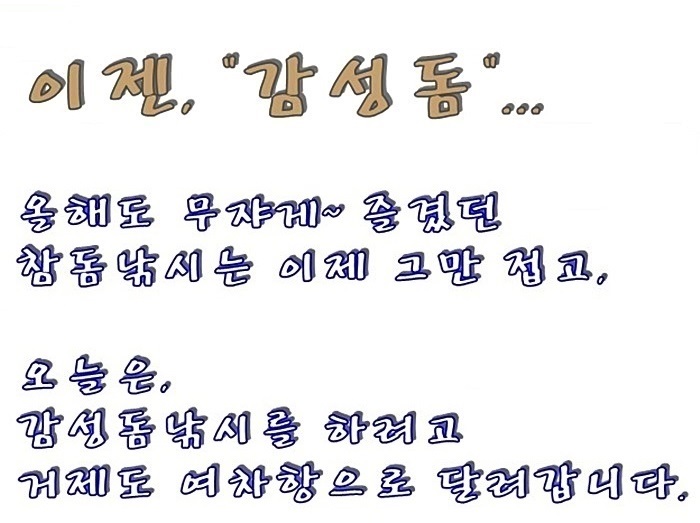 이젠, "감성돔"...
올해도 무쟈게~ 즐겼던
참돔낚시는 이제 그만 접고,
오늘은,
감성돔낚시를 하려고
거제도 여차항으로 달려갑니다.